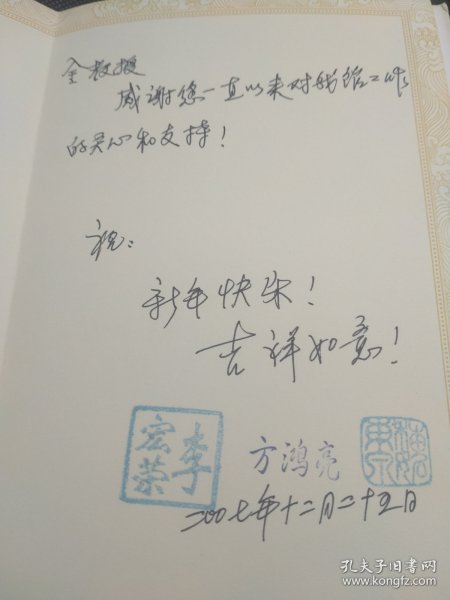 金教授
感谢您一直以来对我馆工作
的关心和支持！
祝：
新年快乐！
吉祥如意！
李宏荣
方鸿亮
二00七年十二月二十五日
孔夫子旧书网
www.kongfz.com